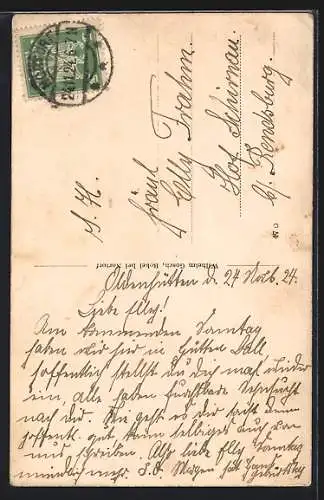 24.11.24
S. H.
Fräul
Elly Frahm
Hof Schirnau
b/ Rendsburg.
Wilhelm Gosch, Bokel bei Nortorf
Oldenhütten d. 24 Novb. 24.
Liebe Elly!
Am kommenden Sonntag
haben wir hier in Hütten Ball
hoffentlich stellst Du Dich mal wieder
ein, Alle haben furchtbare Sehnsucht
nach dir. Wie geht es dir
hoffentl. gut kann selbiges auch von
uns schreiben. Also liebe Elly Sonntag
mehr S. D. Morgen hat Hans
geburtstag